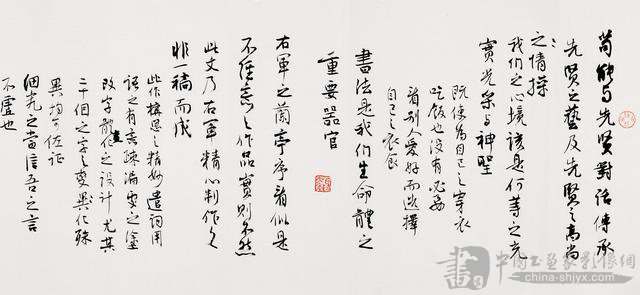 苟能与先贤对话传承
先贤之艺及先贤之高尚
之情操
我们之心境该是何等之充
实光荣与神圣
既使为自己之穿衣
吃饭也没有必要
看别人爱好而选择
自己之衣食
书法是我们生命体之
重要器官
右军之兰亭序看似是
不经意之作品实则不然
此文乃右军精心制作之
非一稿而成
此作构思之精妙遣词用
语之有意疏漏变之涂
改字体位之设计尤其
二十个之字之变异化殊
异均可佐证
细观之当信吾之言
不虚也
中国书画家影像网
www.china-shjyx.com